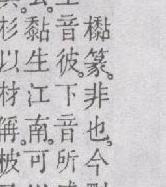 檆篆。非也。今
音彼。下音所
黏生江南。可
杉以材稱。被